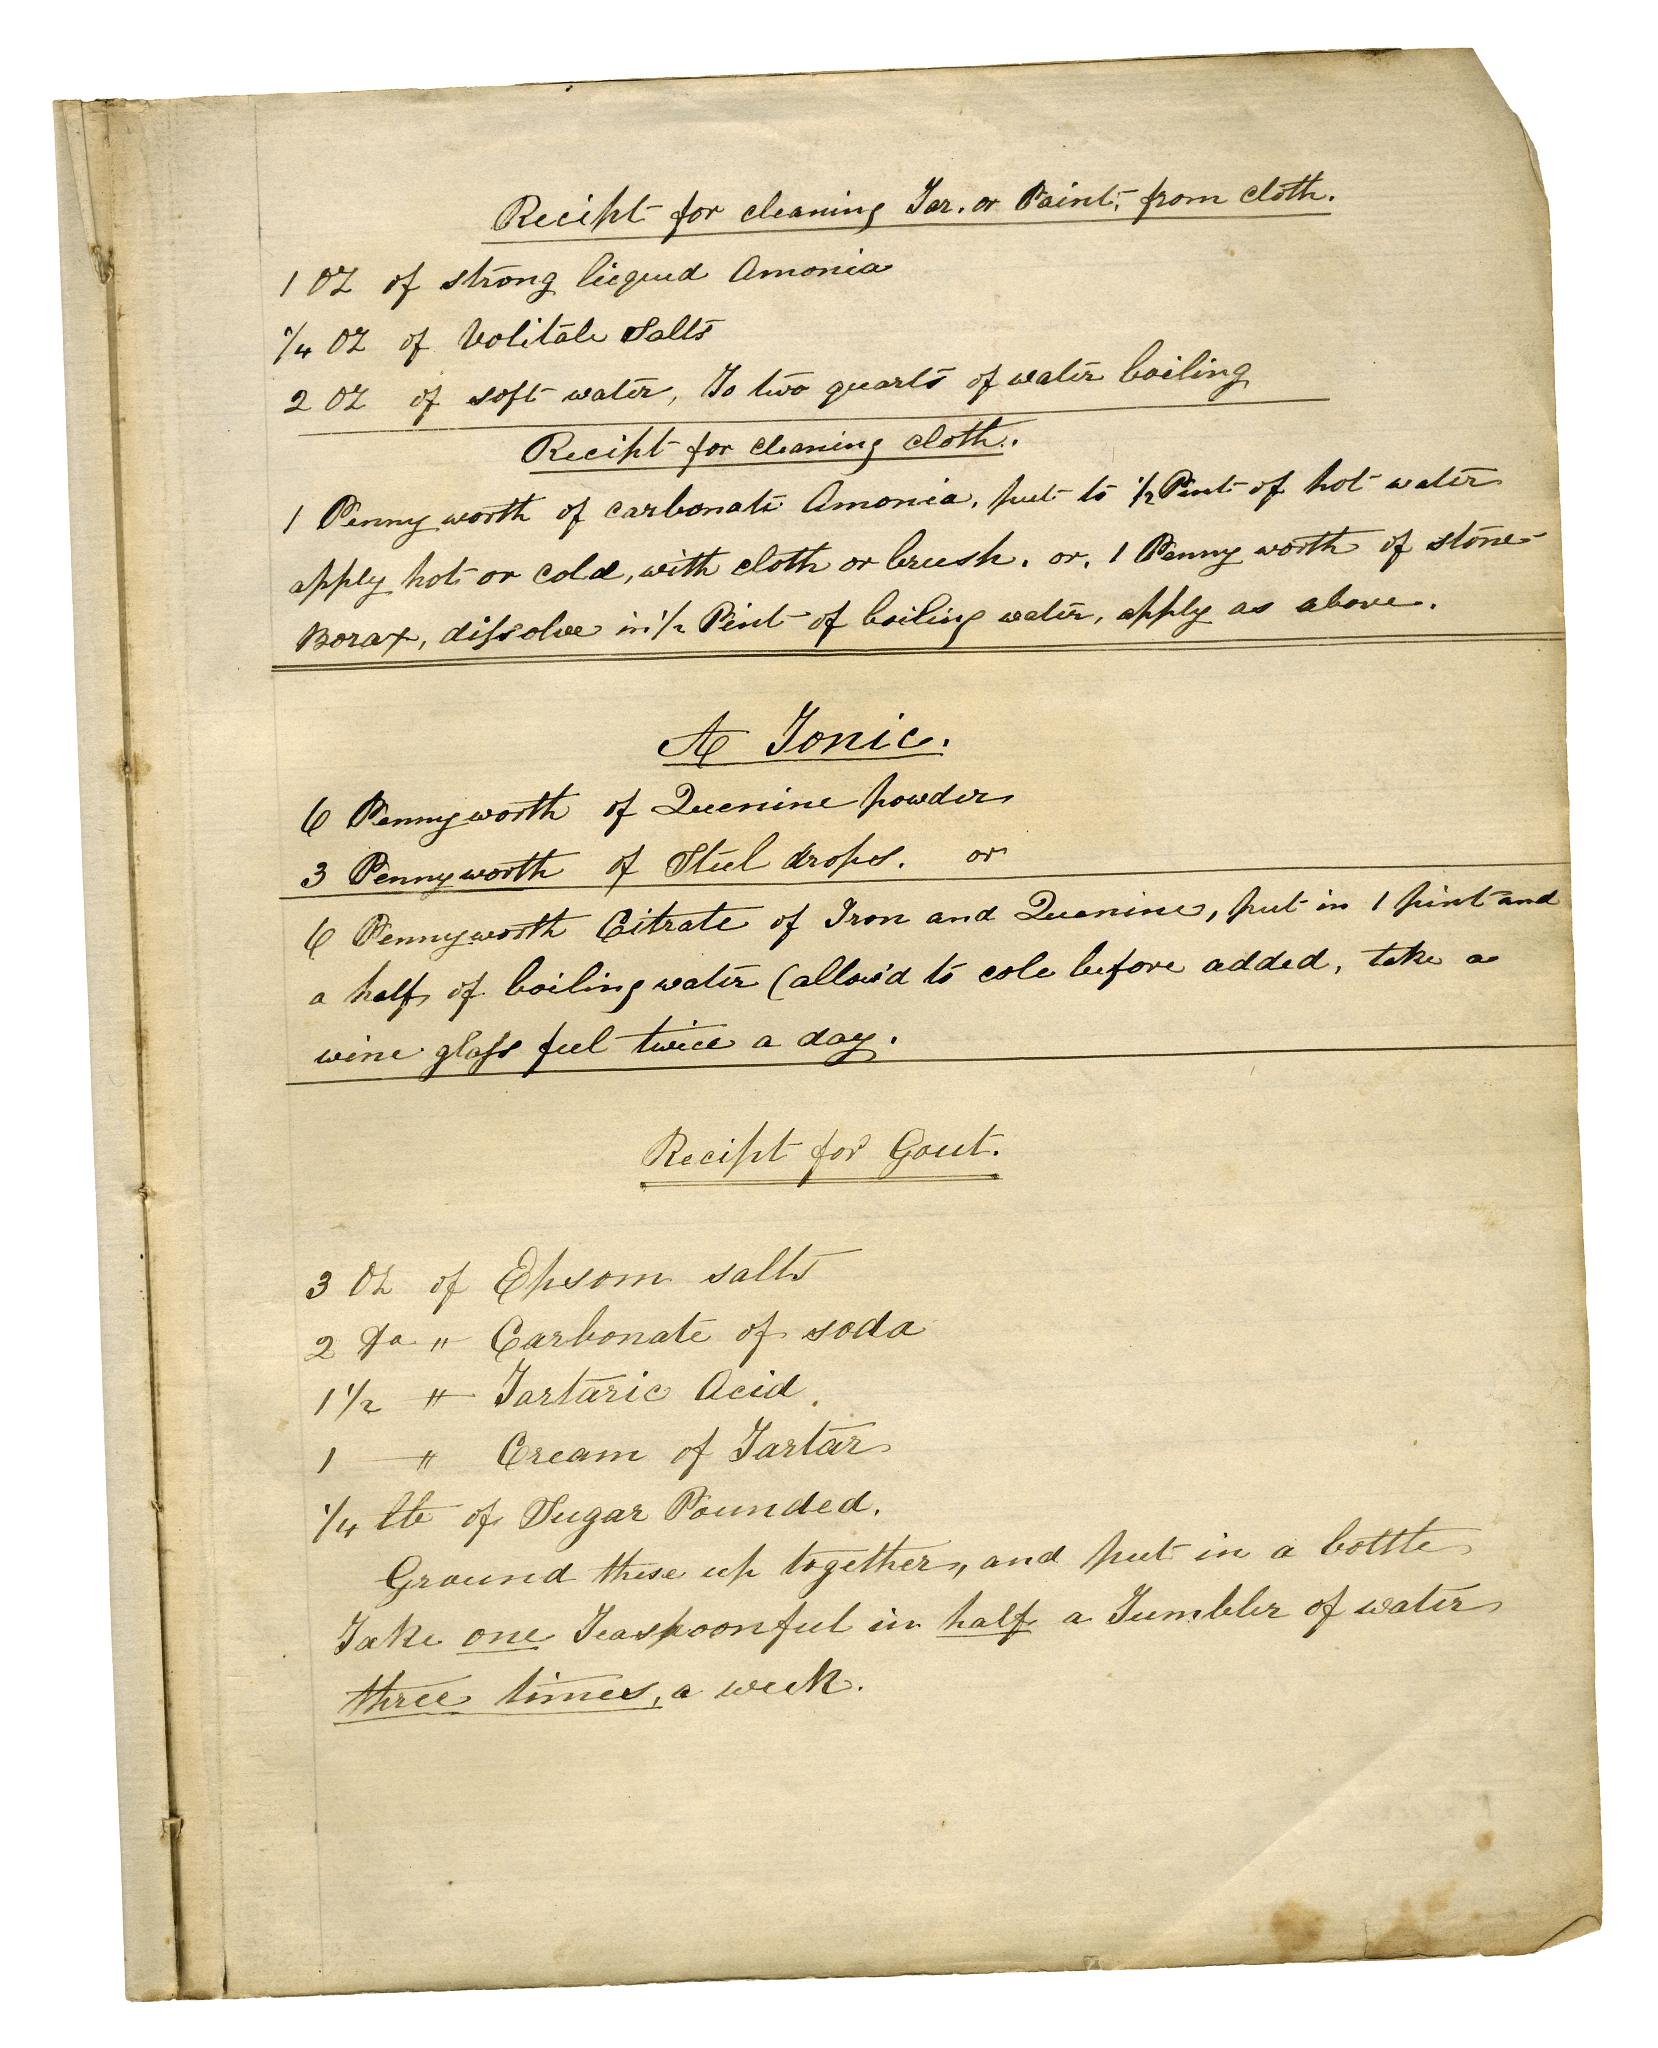 Recipt for cleaning Tar. or Paint, from cloth.
1 OZ of strong liequid Amonia
1/4 OZ of Volitale Salts
2 OZ of soft water, To two quarts of water boiling
Recipt for cleaning cloth.
1 Pennyworth of carbonate Amonia, put to 1/2 Pint of hot water
apply hot or cold, with cloth or brush. or, 1 Penny worth of stone
Borax, dissolve in 1/2 Pint of boiling water, apply as above.
A Tonic.
6 Pennyworth of Quenine powder
3 Pennyworth of Steel drops. or
6 Pennyworth Citrate of Iron and Quenine, put in 1 pint and
a half of boiling water (allow'd to cole before added, take a
wine glass ful twice a day.
Recipt for Gout.
3 OZ of Epsom salts
2 Do " Carbonate of soda
1 1/2 " Tartaric Acid
1 " Cream of Tartar
1/4 lb of Sugar Pounded.
Ground these up together, and put in a bottle
Take one Teaspoonful in half a Tumbler of water
three times, a week.